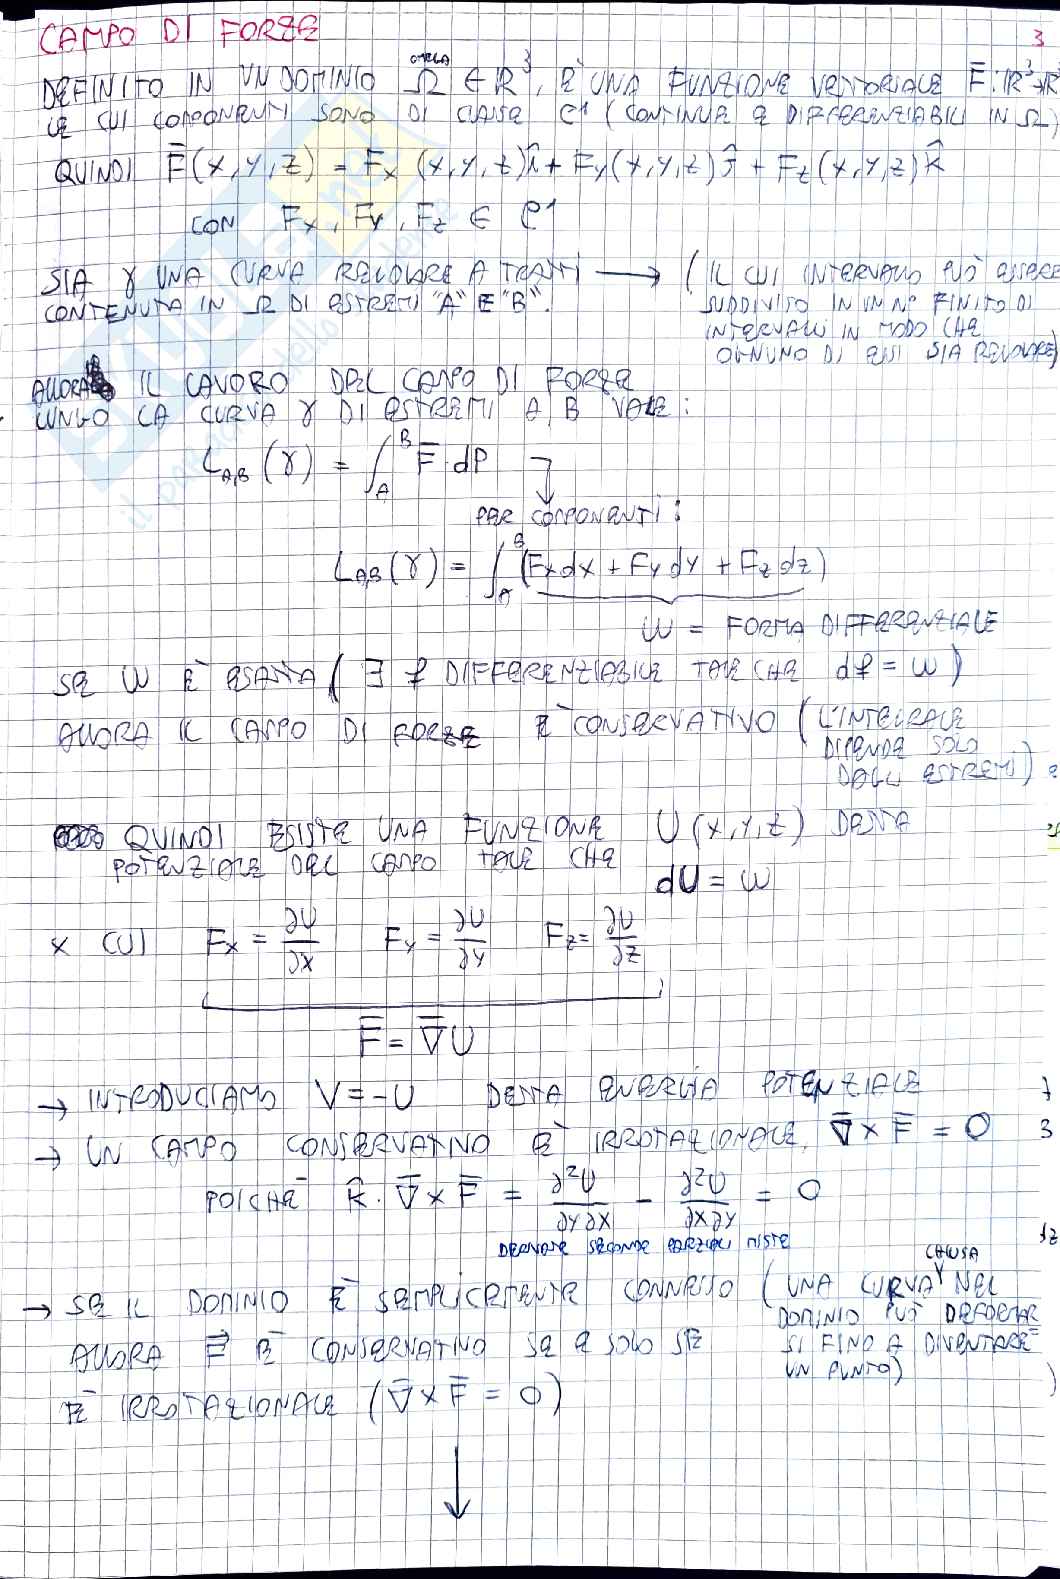 CAMPO DI FORZE
3
DEFINITO IN UN DOMINIO Ω ∈ ℝ³, È UNA FUNZIONE VETTORIALE F̄: ℝ³→ℝ³
OMEGA
LE CUI COMPONENTI SONO DI CLASSE C¹ (CONTINUE E DIFFERENZIABILI IN Ω)
QUINDI F̄(x,y,z) = Fx (x,y,z)î + Fy(x,y,z)ĵ + Fz(x,y,z)k̂
CON Fx, Fy, Fz ∈ C¹
SIA γ UNA CURVA REGOLARE A TRATTI → (IL CUI INTERVALLO PUÒ ESSERE
CONTENUTA IN Ω DI ESTREMI "A" E "B".
SUDDIVISO IN UN N° FINITO DI
INTERVALLI IN MODO CHE
OGNUNO DI ESSI SIA REGOLARE)
ALLORA IL LAVORO DEL CAMPO DI FORZE
LUNGO LA CURVA γ DI ESTREMI A, B VALE:
L_{A,B}(γ) = ∫_A^B F̄ · dP
PER COMPONENTI:
L_{A,B}(γ) = ∫_A^B (Fx dx + Fy dy + Fz dz)
ω = FORMA DIFFERENZIALE
SE ω È ESATTA (∃ f DIFFERENZIABILE TALE CHE df = ω)
ALLORA IL CAMPO DI FORZE È CONSERVATIVO (L'INTEGRALE
DIPENDE SOLO
DAGLI ESTREMI)
QUINDI ESISTE UNA FUNZIONE U(x,y,z) DETTA
POTENZIALE DEL CAMPO TALE CHE
dU = ω
x CUI Fx = ∂U/∂x Fy = ∂U/∂y Fz = ∂U/∂z
F̄ = ∇̄U
→ INTRODUCIAMO V = -U DETTA ENERGIA POTENZIALE
→ UN CAMPO CONSERVATIVO È IRROTAZIONALE, ∇̄ × F̄ = 0
3
POICHÉ k̂ · ∇̄ × F̄ = ∂²U/∂y∂x - ∂²U/∂x∂y = 0
DERIVATE SECONDE PARZIALI MISTE
CHIUSA
→ SE IL DOMINIO È SEMPLICEMENTE CONNESSO (UNA CURVA NEL
DOMINIO PUÒ DEFORMAR
SI FINO A DIVENTARE
UN PUNTO)
ALLORA F̄ È CONSERVATIVO SE E SOLO SE
È IRROTAZIONALE (∇̄ × F̄ = 0)